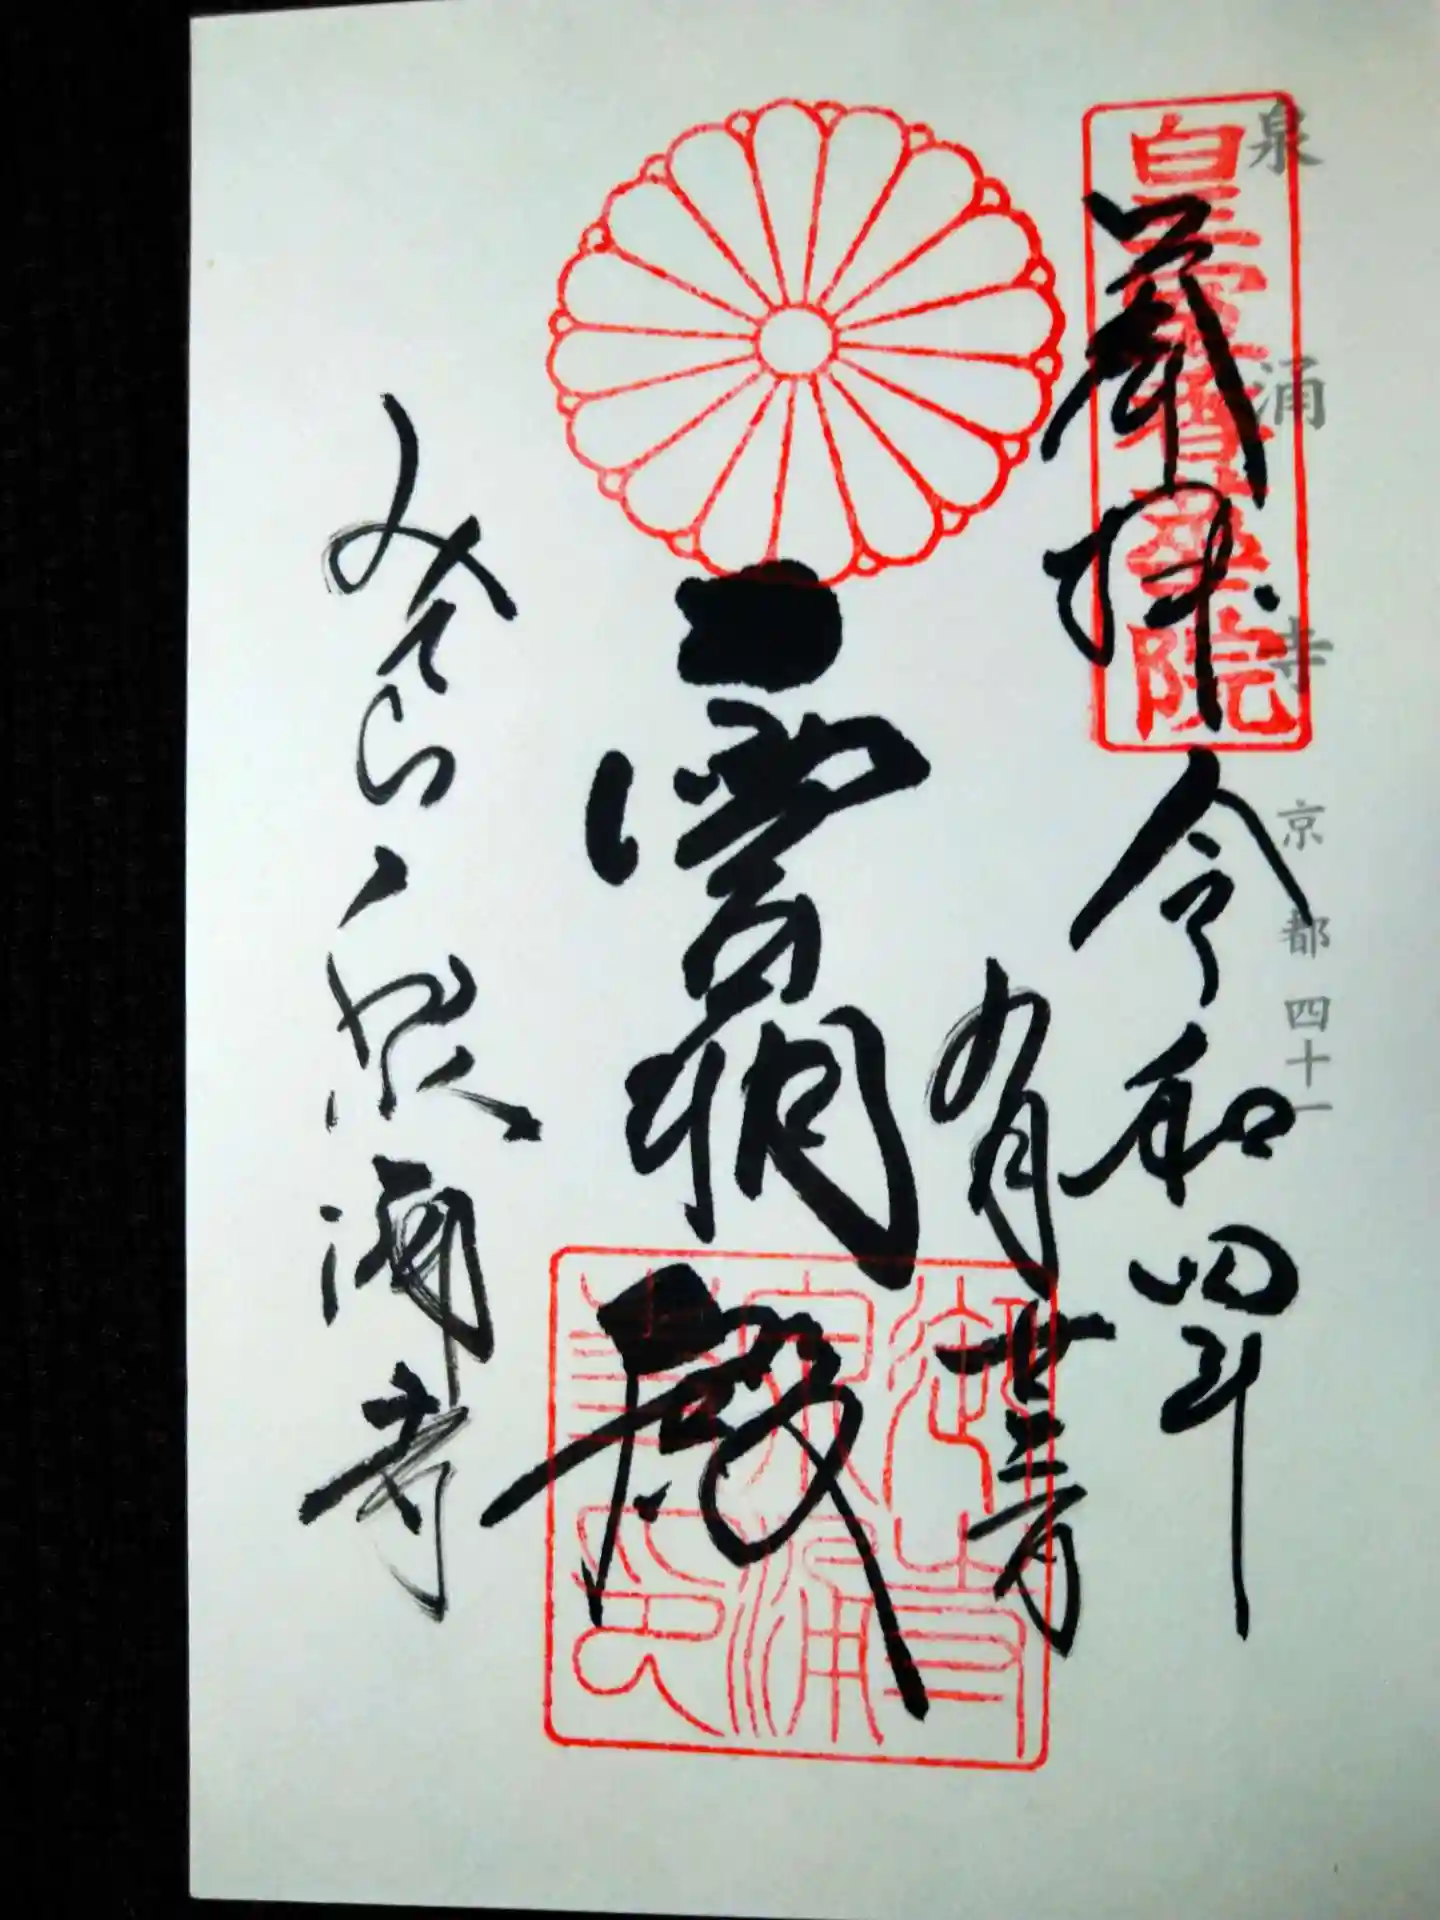 泉涌寺 京都 四十一
皇室香華院
奉拝 令和四年
九月廿三日
霊明殿
御寺泉涌寺印
みてら泉涌寺